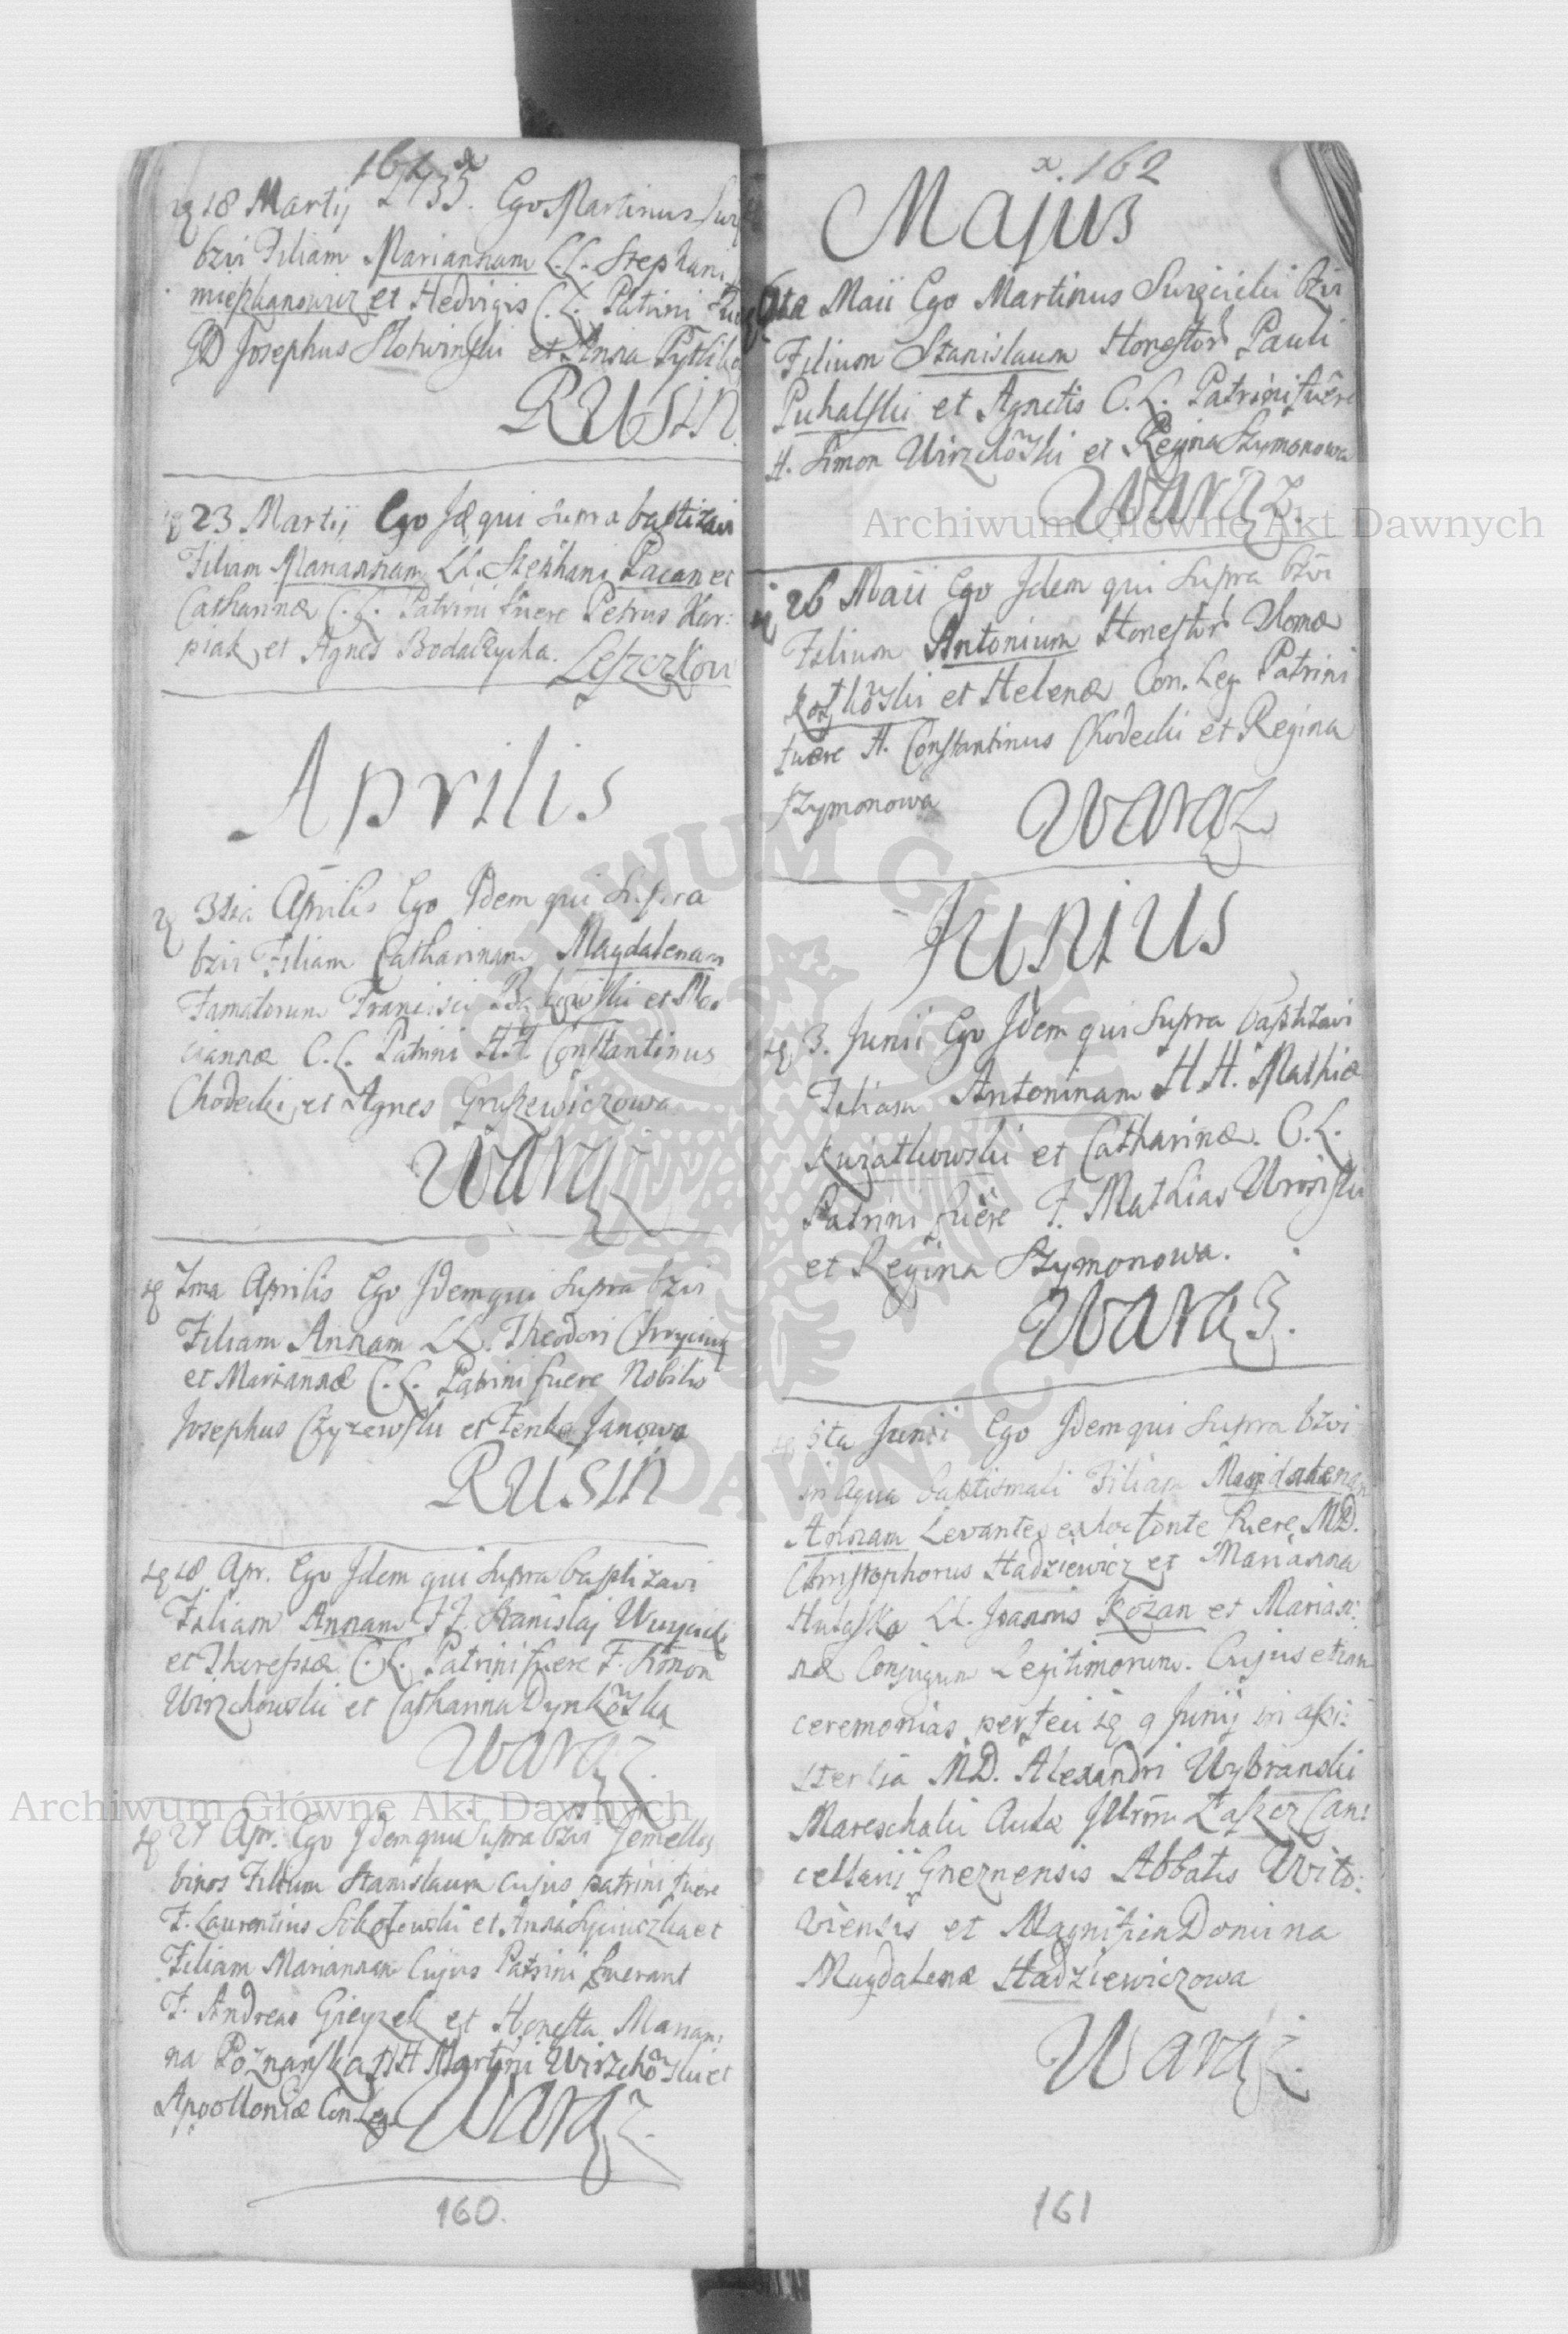 161
18 Martij 1735. Ego Martinus
bzvi Filiam Mariannam L.L. Stephani
et Hedvigis C.L. Patrini
GD Josephus Slotwinski et Anna
RUSIN
23 Martij Ego Id̄e qui supra baptizavi
Filiam Mariannam LL. Stephani Pacan et
Catharinæ C.L. Patrini fuere Petrus Kar:
piak et Agnes
Leszczkow
Aprilis
3tia Aprilis Ego Idem qui supra
bzvi Filiam Catharinam Magdalenam
Famatorum Francisci et Ma
riannæ C.L. Patrini HH Constantinus
Chodecki et Agnes Gruszewiczowa
Waręz
7ma Aprilis Ego Idem qui supra bzvi
Filiam Annam LL. Theodori
et Mariannæ C.L. Patrini fuere Nobilis
Josephus Czyzewski et Fenka Janowa
RUSIN
18 Apr. Ego Idem qui supra baptizavi
Filiam Annam FF. Stanislaj
et Theressæ C.L. Patrini fuere F. Simon
Wirzchowski et Catharina Dynkow̃ska
Waręz.
27 Apr. Ego Idem qui supra bzvi Jemellos
binos Filium Stanislaum cujus patrini fuere
F. Laurentius et Anna et
Filiam Mariannam Cujus Patrini fuerant
F. Andreas et Honesta Marian:
na Poznanska HH Martini Wirzchow̃ski et
Apolloniæ Con. Leg.
Waręz.
160.
162
Majus
Maii Ego Martinus Surgicki bzvi
Filium Stanislaum Honestor̃ Pauli
Puhalski et Agnetis C.L. Patrini fuêre
H. Simon Wirzchow̃ski et Regina Szymonowa
Waręz.
26 Maii Ego Idem qui supra bzvi
Filium Antonium Honestor̃ Thomæ
et Helenæ Con. Leg. Patrini
fuere H. Constantinus Chodecki et Regina
Szymonowa
Waręz
Junius
3. Junii Ego Idem qui supra baptizavi
Filiam Antoninam HH. Mathiæ
Kwiatkowski et Catharinæ. C.L.
Patrini fuêre F. Mathias
et Regina Szymonowa.
Waręz.
5ta Junii Ego Idem qui supra bzvi
in aqua baptismali Filiam Magdalenam
Annam Levantes ex hoc fonte fuere MD.
Christophorus Hadziewicz et Marianna
LL. Joannis Kozan et Marian:
næ Conjugum Legitimorum. Cujus etiam
ceremonias perfeci 9 Junij in assi:
stentia MD. Alexandri Wybranski
Mareschalci Aulæ Illr̃m Laszcz Can:
cellarii Gneznensis Abbatis Wito:
viensis et Magnifica Domina
Magdalenæ Hadziewiczowa
Waręz.
161
Archiwum Główne Akt Dawnych
Archiwum Główne Akt Dawnych
ARCHIWUM GŁÓWNE AKT DAWNYCH